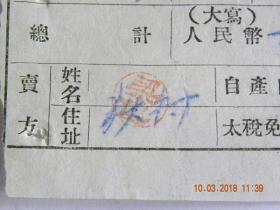 (大寫)
總計 人民幣
賣方 姓名住址 自產
太稅免
10.03.2018 11:39